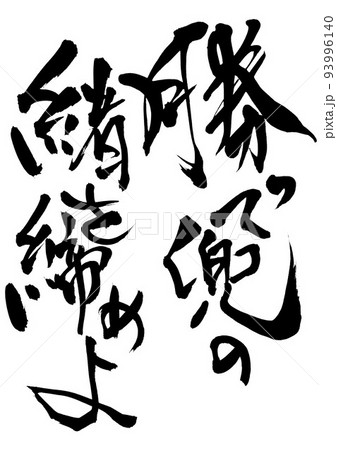 勝って兜の
緒を締めよ
PIXTA
pixta.jp - 93996140